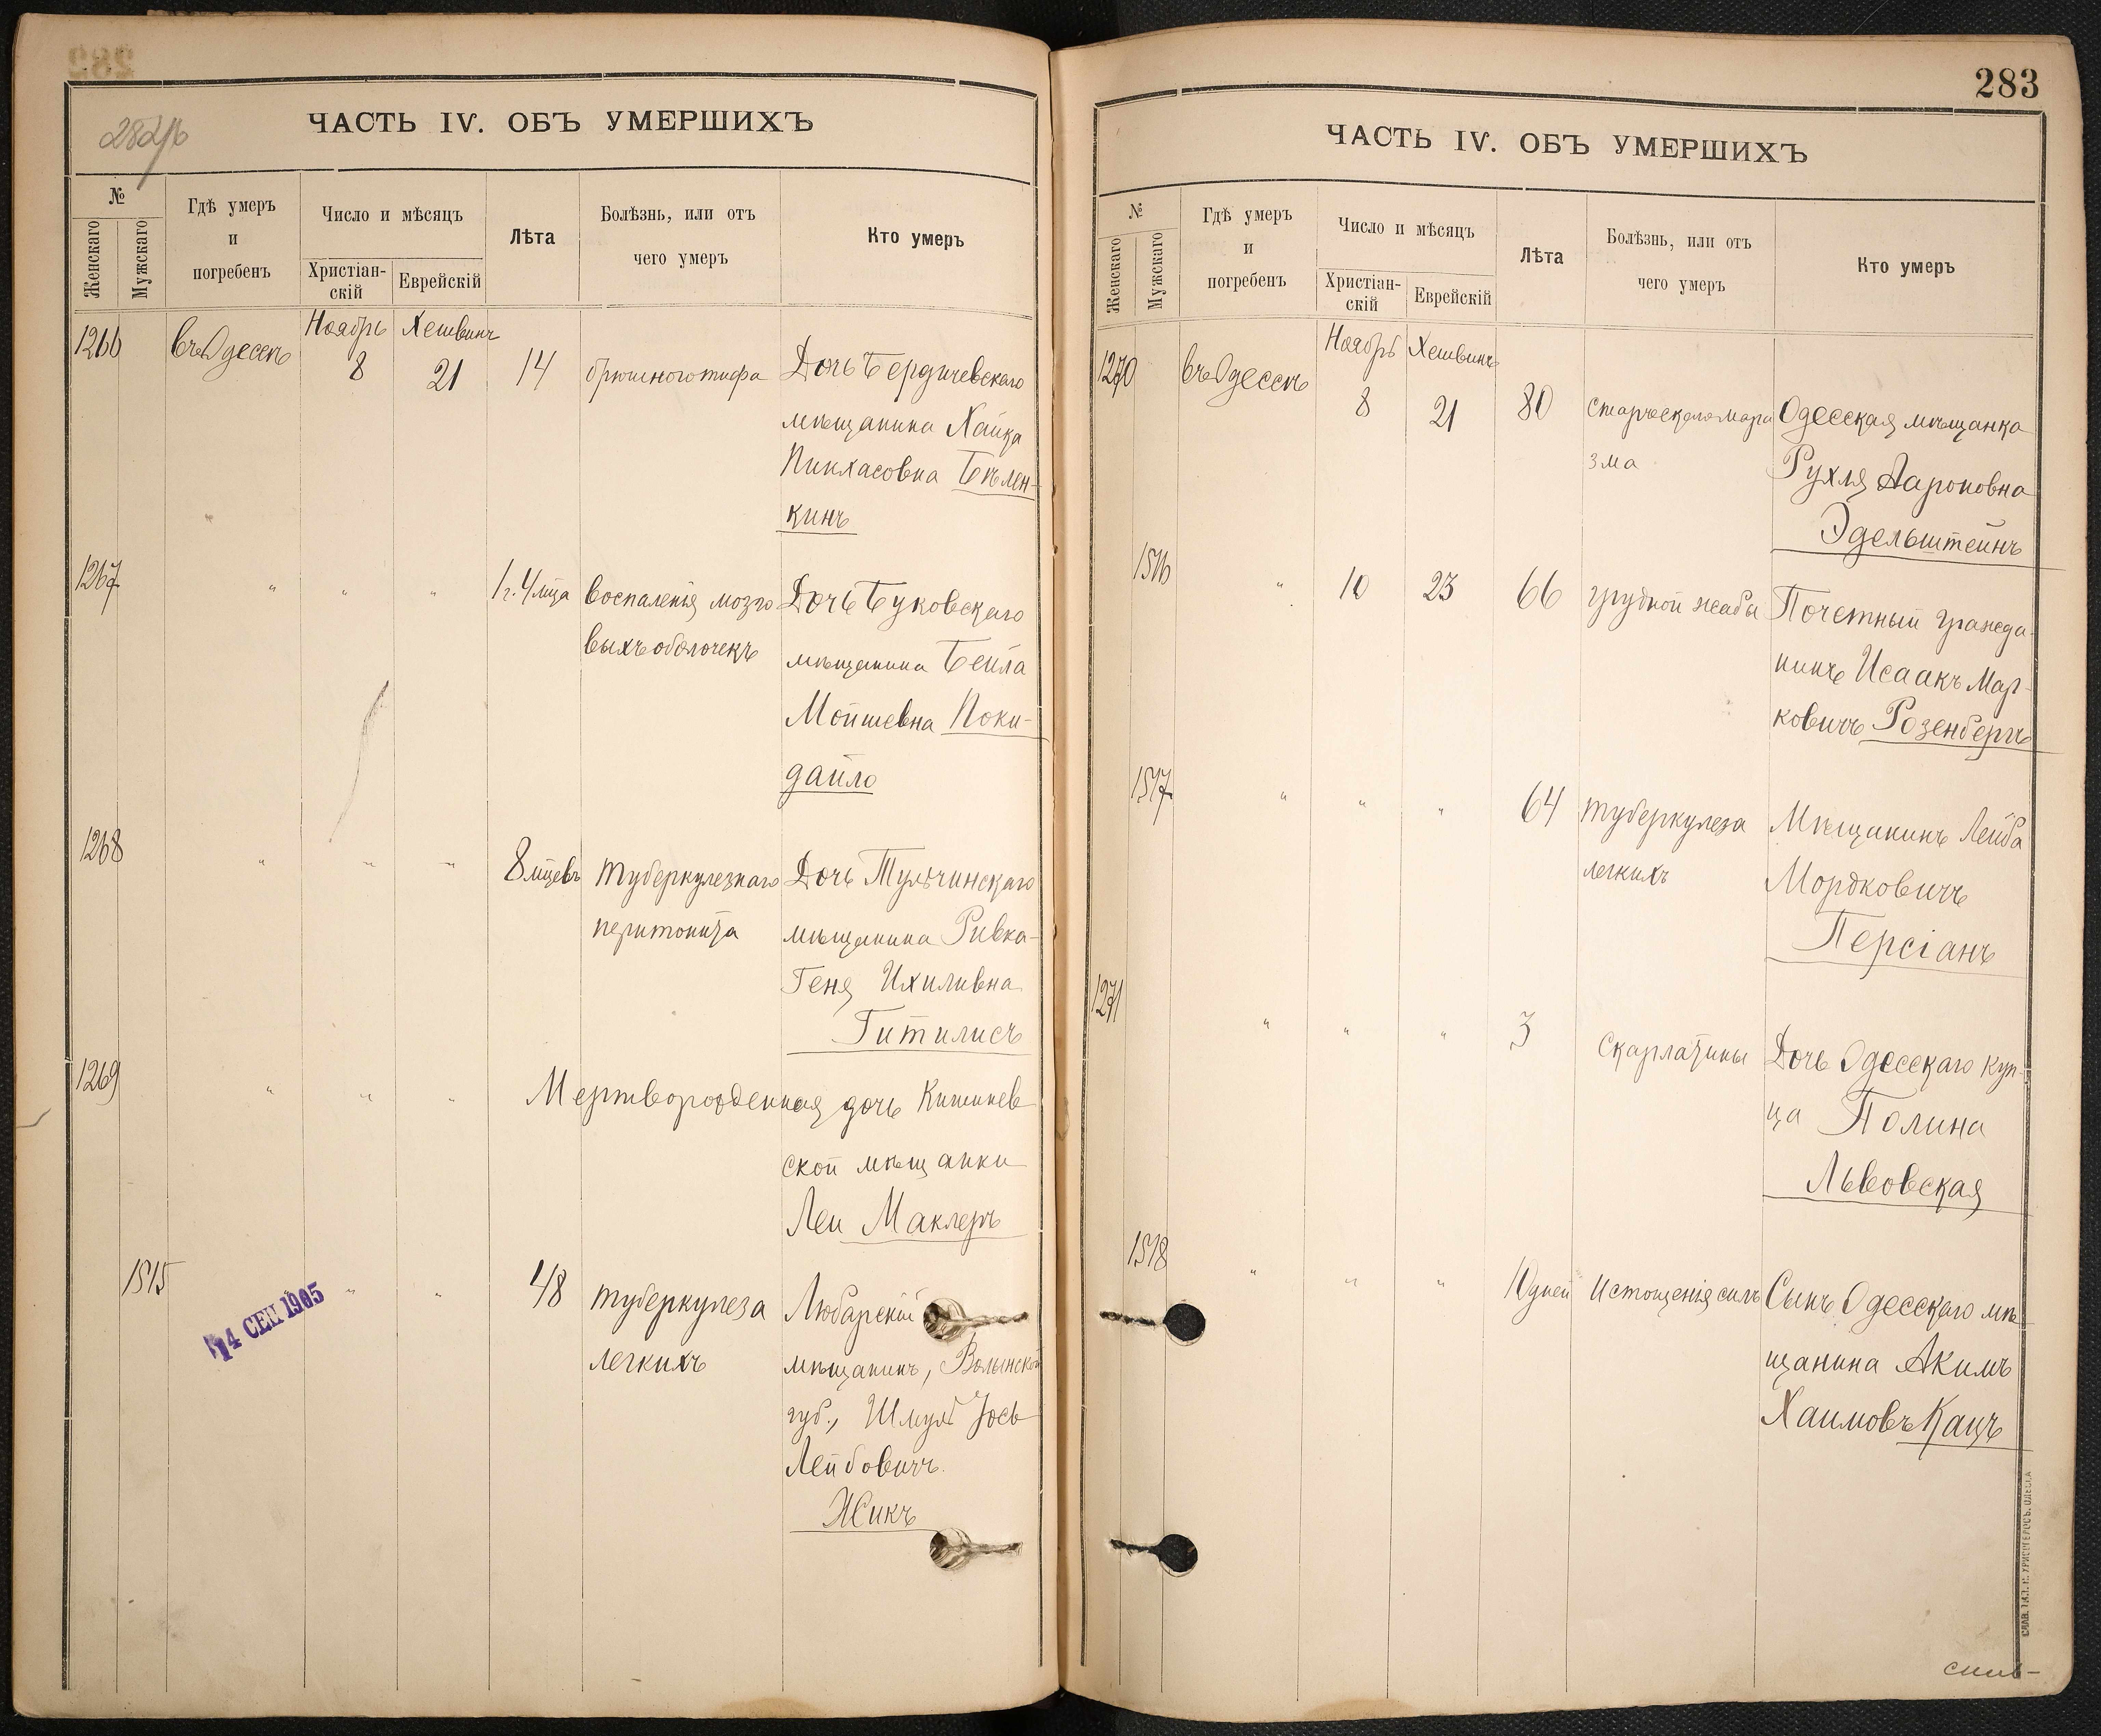 282/б
ЧАСТЬ IV. ОБЪ УМЕРШИХЪ
№
Женскаго
Мужскаго
Гдѣ умеръ
и
погребенъ
Число и мѣсяцъ
Христіан-
скій
Еврейскій
Лѣта
Болѣзнь, или отъ
чего умеръ
Кто умеръ
1266 въ Одессѣ Ноябрь 8 Хешвинъ 21 14 брюшного тифа Дочь Бердичевскаго
мѣщанина Хайка
Пинхасовна Бѣлен-
кинъ
1267 " " " 1 г. 4 м̃ца воспаленія мозго Дочь Буковскаго
выхъ оболочекъ мѣщанина Бейла
Мойшевна Поки-
дайло
1268 " " " 8 м̃цевъ туберкулезнаго Дочь Тульчинскаго
перитонита мѣщанина Ривка-
Геня Ихиливна
Гитилисъ
1269 " " " Мертворожденная дочь Кишинев
ской мѣщанки
Леи Маклеръ
1515 " " " 48 туберкулеза Любарскій
легкихъ мѣщанинъ, Волынской
губ., Шмуль Іось
Лейбовичъ
Жикъ
14 СЕН 1905
283
ЧАСТЬ IV. ОБЪ УМЕРШИХЪ
№
Женскаго
Мужскаго
Гдѣ умеръ
и
погребенъ
Число и мѣсяцъ
Христіан-
скій
Еврейскій
Лѣта
Болѣзнь, или отъ
чего умеръ
Кто умеръ
1270 въ Одессѣ Ноябрь 8 Хешвинъ 21 80 старческаго мара Одесская мѣщанка
зма Рухля Аароновна
Эдельштейнъ
1516 " 10 23 66 грудной жабы Почетный гражда-
нинъ Исаакъ Мар-
ковичъ Розенбергъ
1517 " " " 64 туберкулеза Мѣщанинъ Лейба
легкихъ Мордковичъ
Персіанъ
1271 " " " 3 Скарлатины Дочь Одесскаго куп-
ца Полина
Львовская
1518 " " " 10 дней Истощенія силъ Сынъ Одесскаго мѣ-
щанина Акимъ
Хаимовъ Кацъ